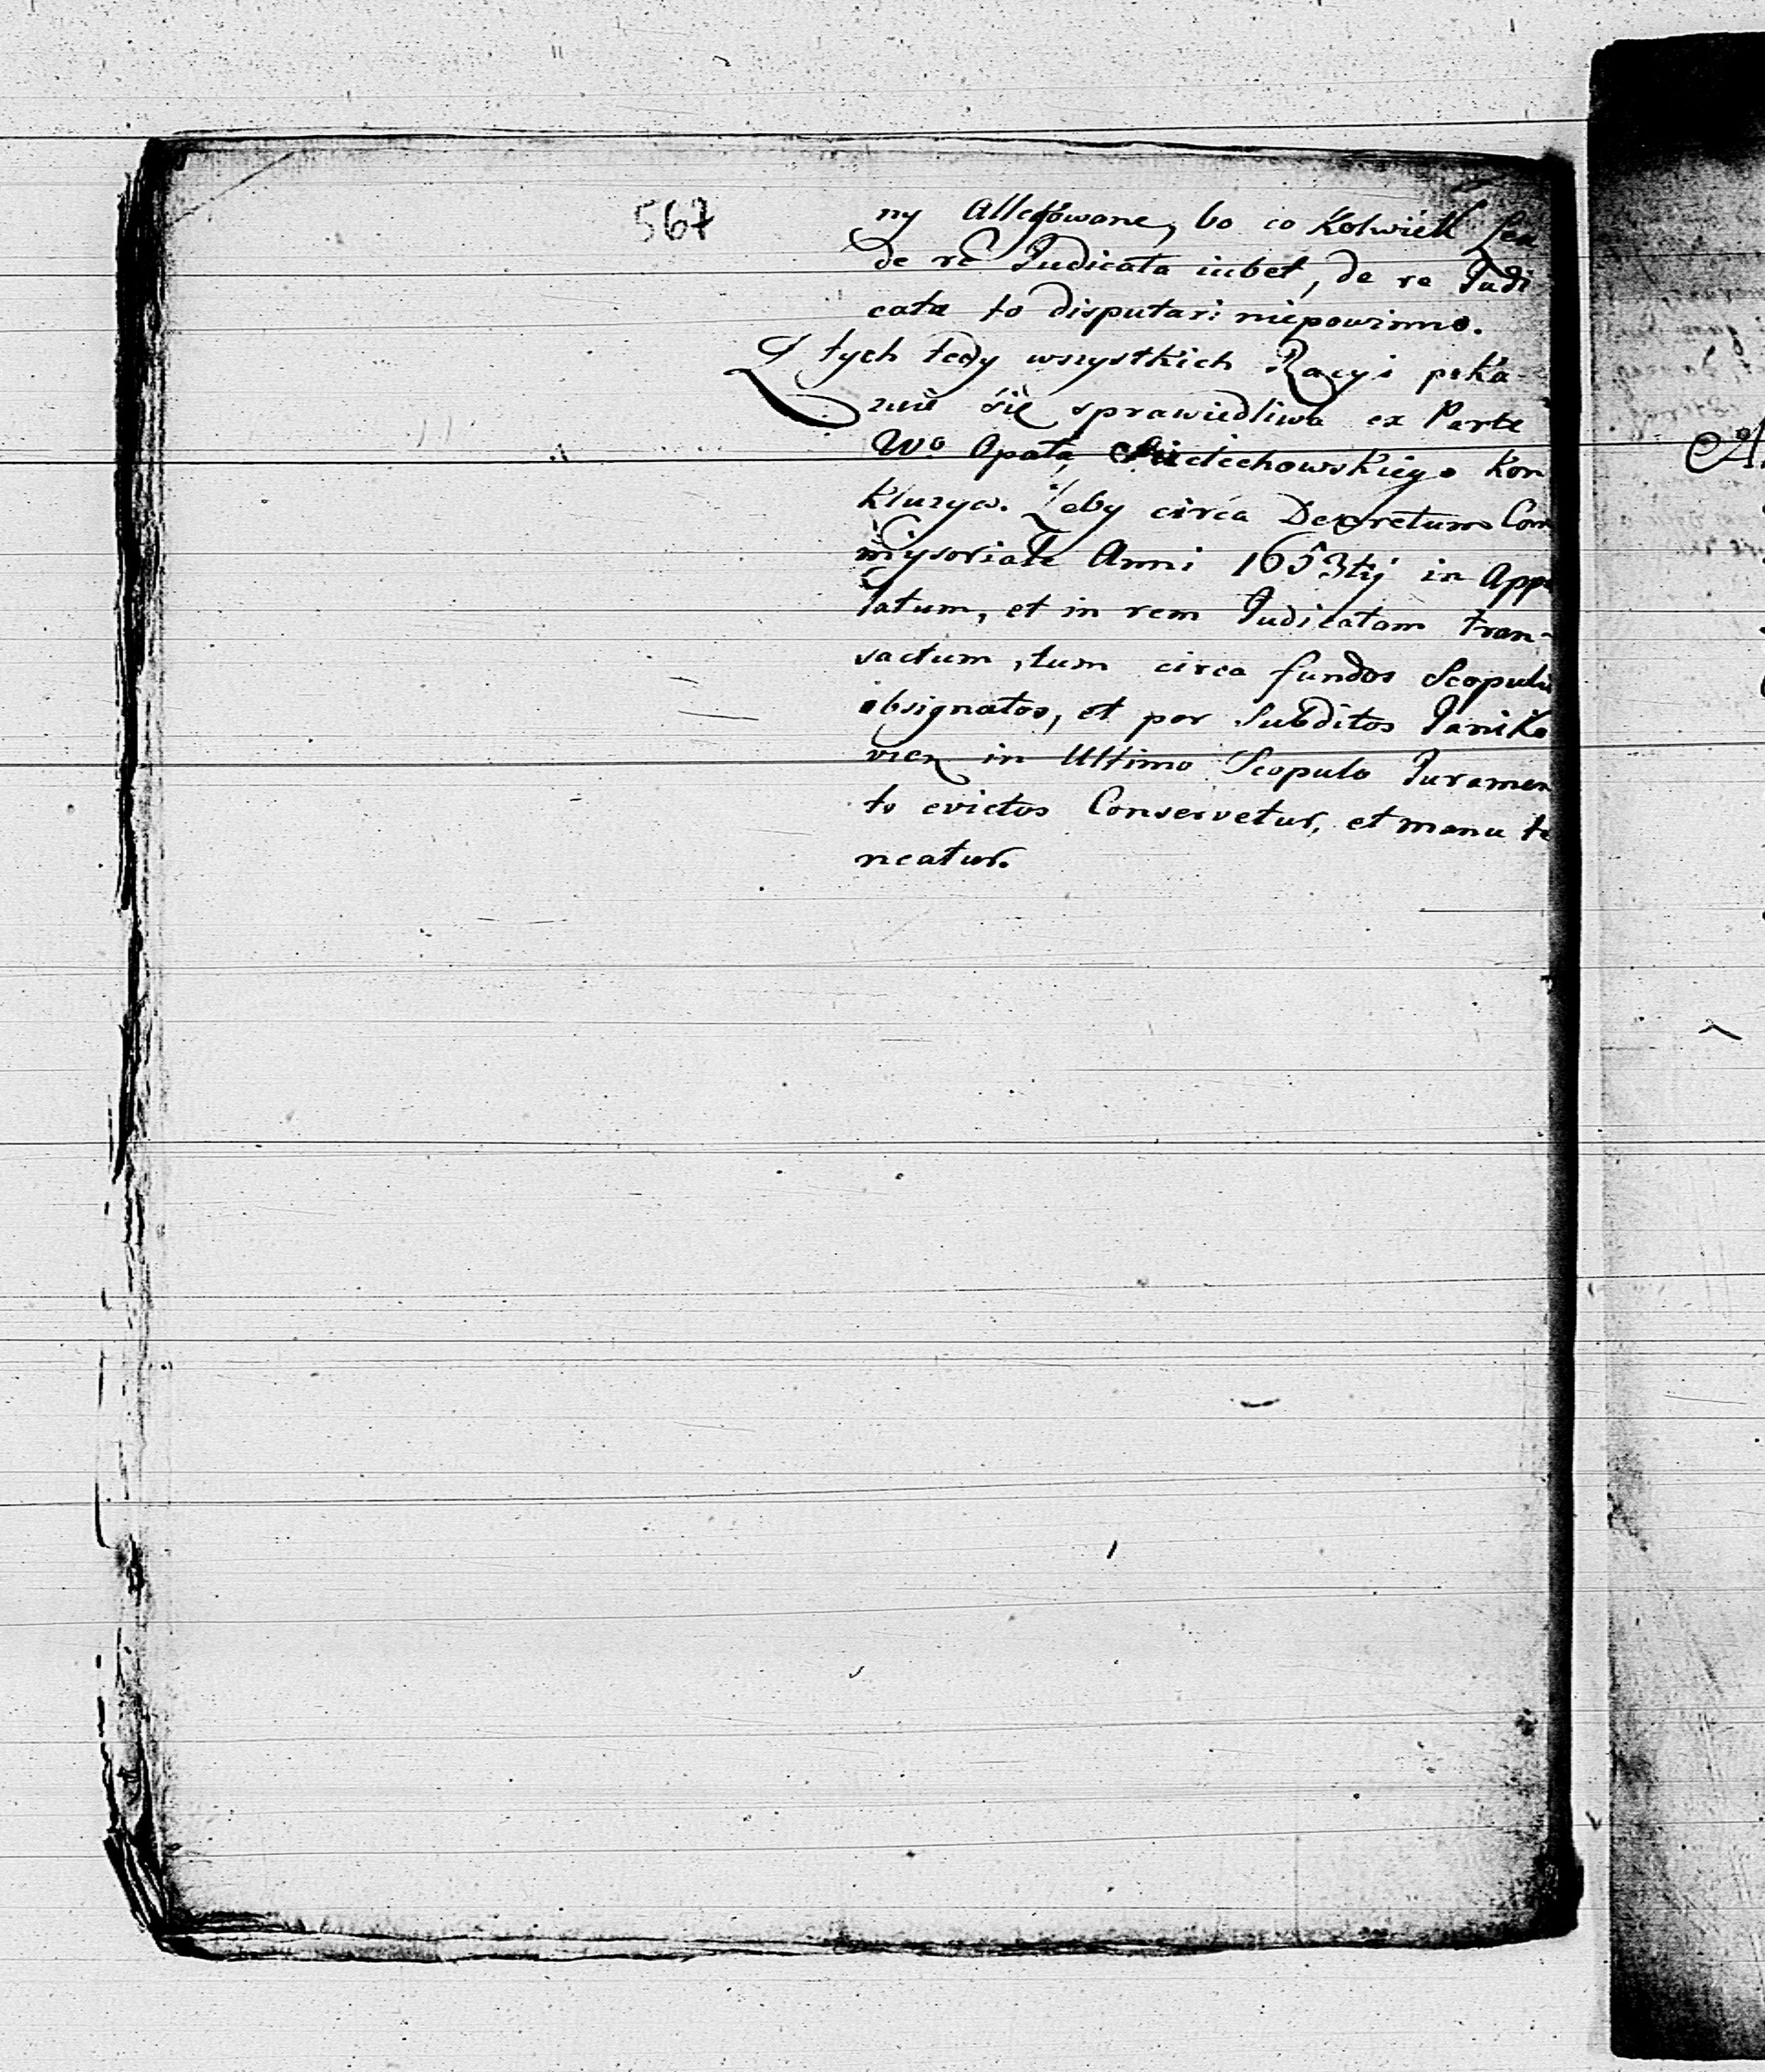 567
ny Allegowane, bo co kolwiek Lex
de re Judicata iubet, de re Judi
cata to disputari niepowinno.
Z tych tedy wszystkich Racyi poka-
zuie się sprawiedliwa ex Parte
Wo Opata Sieciechowskiego Kon
kluzya. Żeby circa Decretum Com
miysoriale Anni 1653tij in Appe
latum, et in rem Judicatam tran-
sactum, tum circa fundos Scopulis
obsignatos, et per Subditos Janiko
vien in Ultimo Scopulo Juramen
to evictos Conservetur, et manu te
neatur.